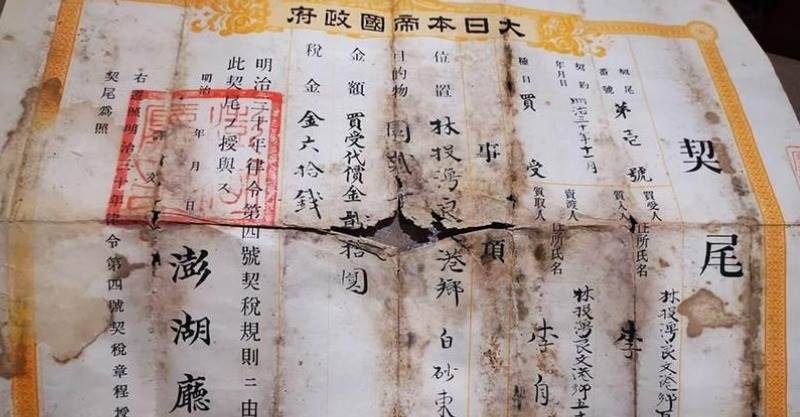 大日本帝國政府
契尾
買受人 住所氏名 林投灣良文港鄉 李
質入人
賣渡人 住所氏名 林投灣良文港鄉 李
質取人
契尾番號 第壹號
契約年月日 明治三十年十二月
種目 買受
事項
位置 林投灣良文港鄉 白砂東
目的物 園
金額 買受代價金貳拾圓
稅金 金六拾錢
明治三十年律令第四號契稅規則ニ由
此契尾ヲ授與ス
明治 年 月 日 澎湖廳
右遵照明治三十年律令第四號契稅章程授
契尾爲照